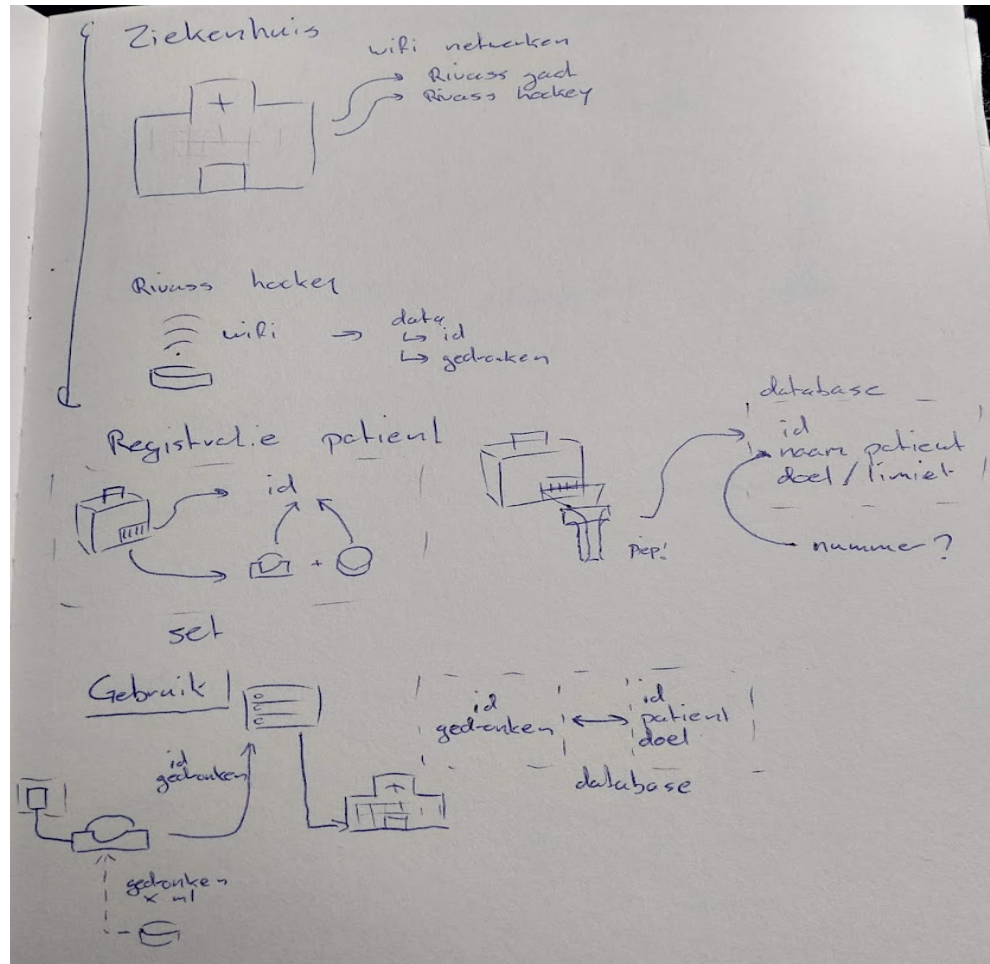 Ziekenhuis
wifi netwerken
Rivass gast
Rivass hockey
Rivass hockey
wifi
data
id
gedronken
Registratie patient
id
set
pep!
database
id
naam patient
doel / limiet
nummer?
Gebruik
id
gedronken
gedronken
x ml
id
gedronken
id
patient
doel
database